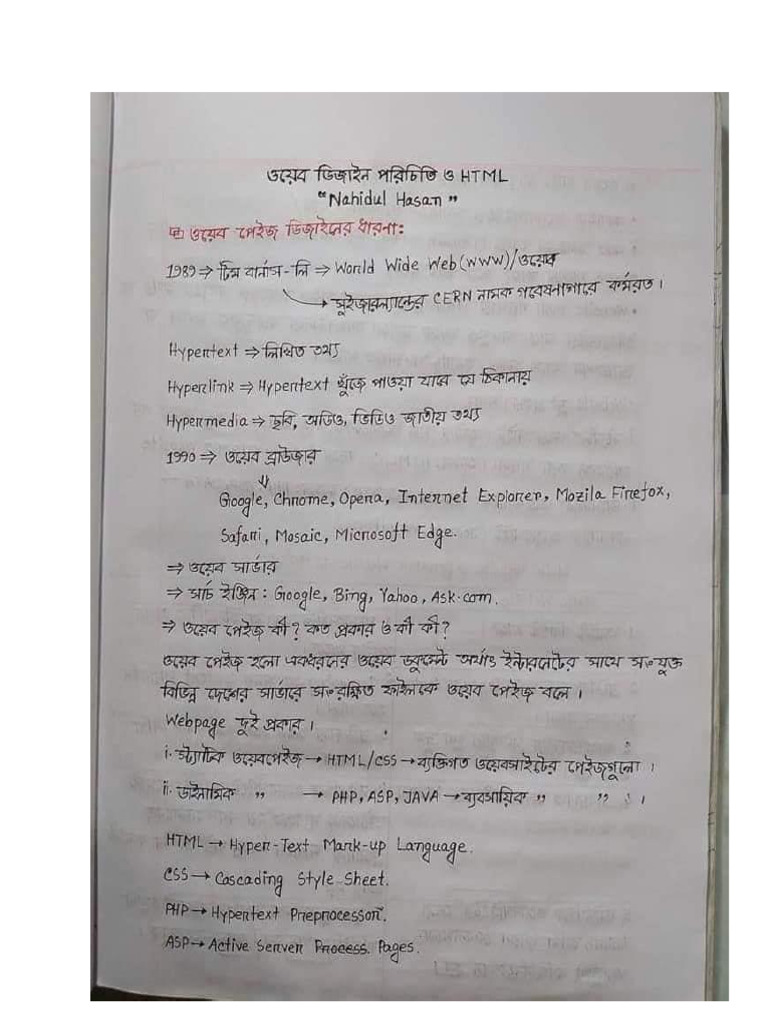 ওয়েব ডিজাইন পরিচিতি ও HTML
"Nahidul Hasan"
ওয়েব পেইজ ডিজাইনের ধারনা:
1989 ⇒ টিম বার্নাস-লি ⇒ World Wide Web (WWW)/ওয়েব
→ সুইজারল্যান্ডের CERN নামক গবেষনাগারে কর্মরত।
Hypertext ⇒ লিখিত তথ্য
Hyperlink ⇒ Hypertext খুঁজে পাওয়া যাবে যে ঠিকানায়
Hypermedia ⇒ ছবি, অডিও, ভিডিও জাতীয় তথ্য
1990 ⇒ ওয়েব ব্রাউজার
⇓
Google, Chrome, Opera, Internet Explorer, Mozila Firefox,
Safari, Mosaic, Microsoft Edge.
⇒ ওয়েব সার্ভার
⇒ সার্চ ইঞ্জিন: Google, Bing, Yahoo, Ask.com.
⇒ ওয়েব পেইজ কী? কত প্রকার ও কী কী?
ওয়েব পেইজ হলো একধরনের ওয়েব ডকুমেন্ট অর্থাৎ ইন্টারনেটের সাথে সংযুক্ত
বিভিন্ন দেশের সার্ভারে সংরক্ষিত ফাইলকে ওয়েব পেইজ বলে।
Webpage দুই প্রকার।
i. স্ট্যাটিক ওয়েবপেইজ → HTML/CSS → ব্যক্তিগত ওয়েবসাইটের পেইজগুলো।
ii. ডাইনামিক " → PHP, ASP, JAVA → ব্যবসায়িক " " ।
HTML → Hyper-Text Mark-up Language.
CSS → Cascading Style Sheet.
PHP → Hypertext Preprocessor.
ASP → Active Server Process Pages.